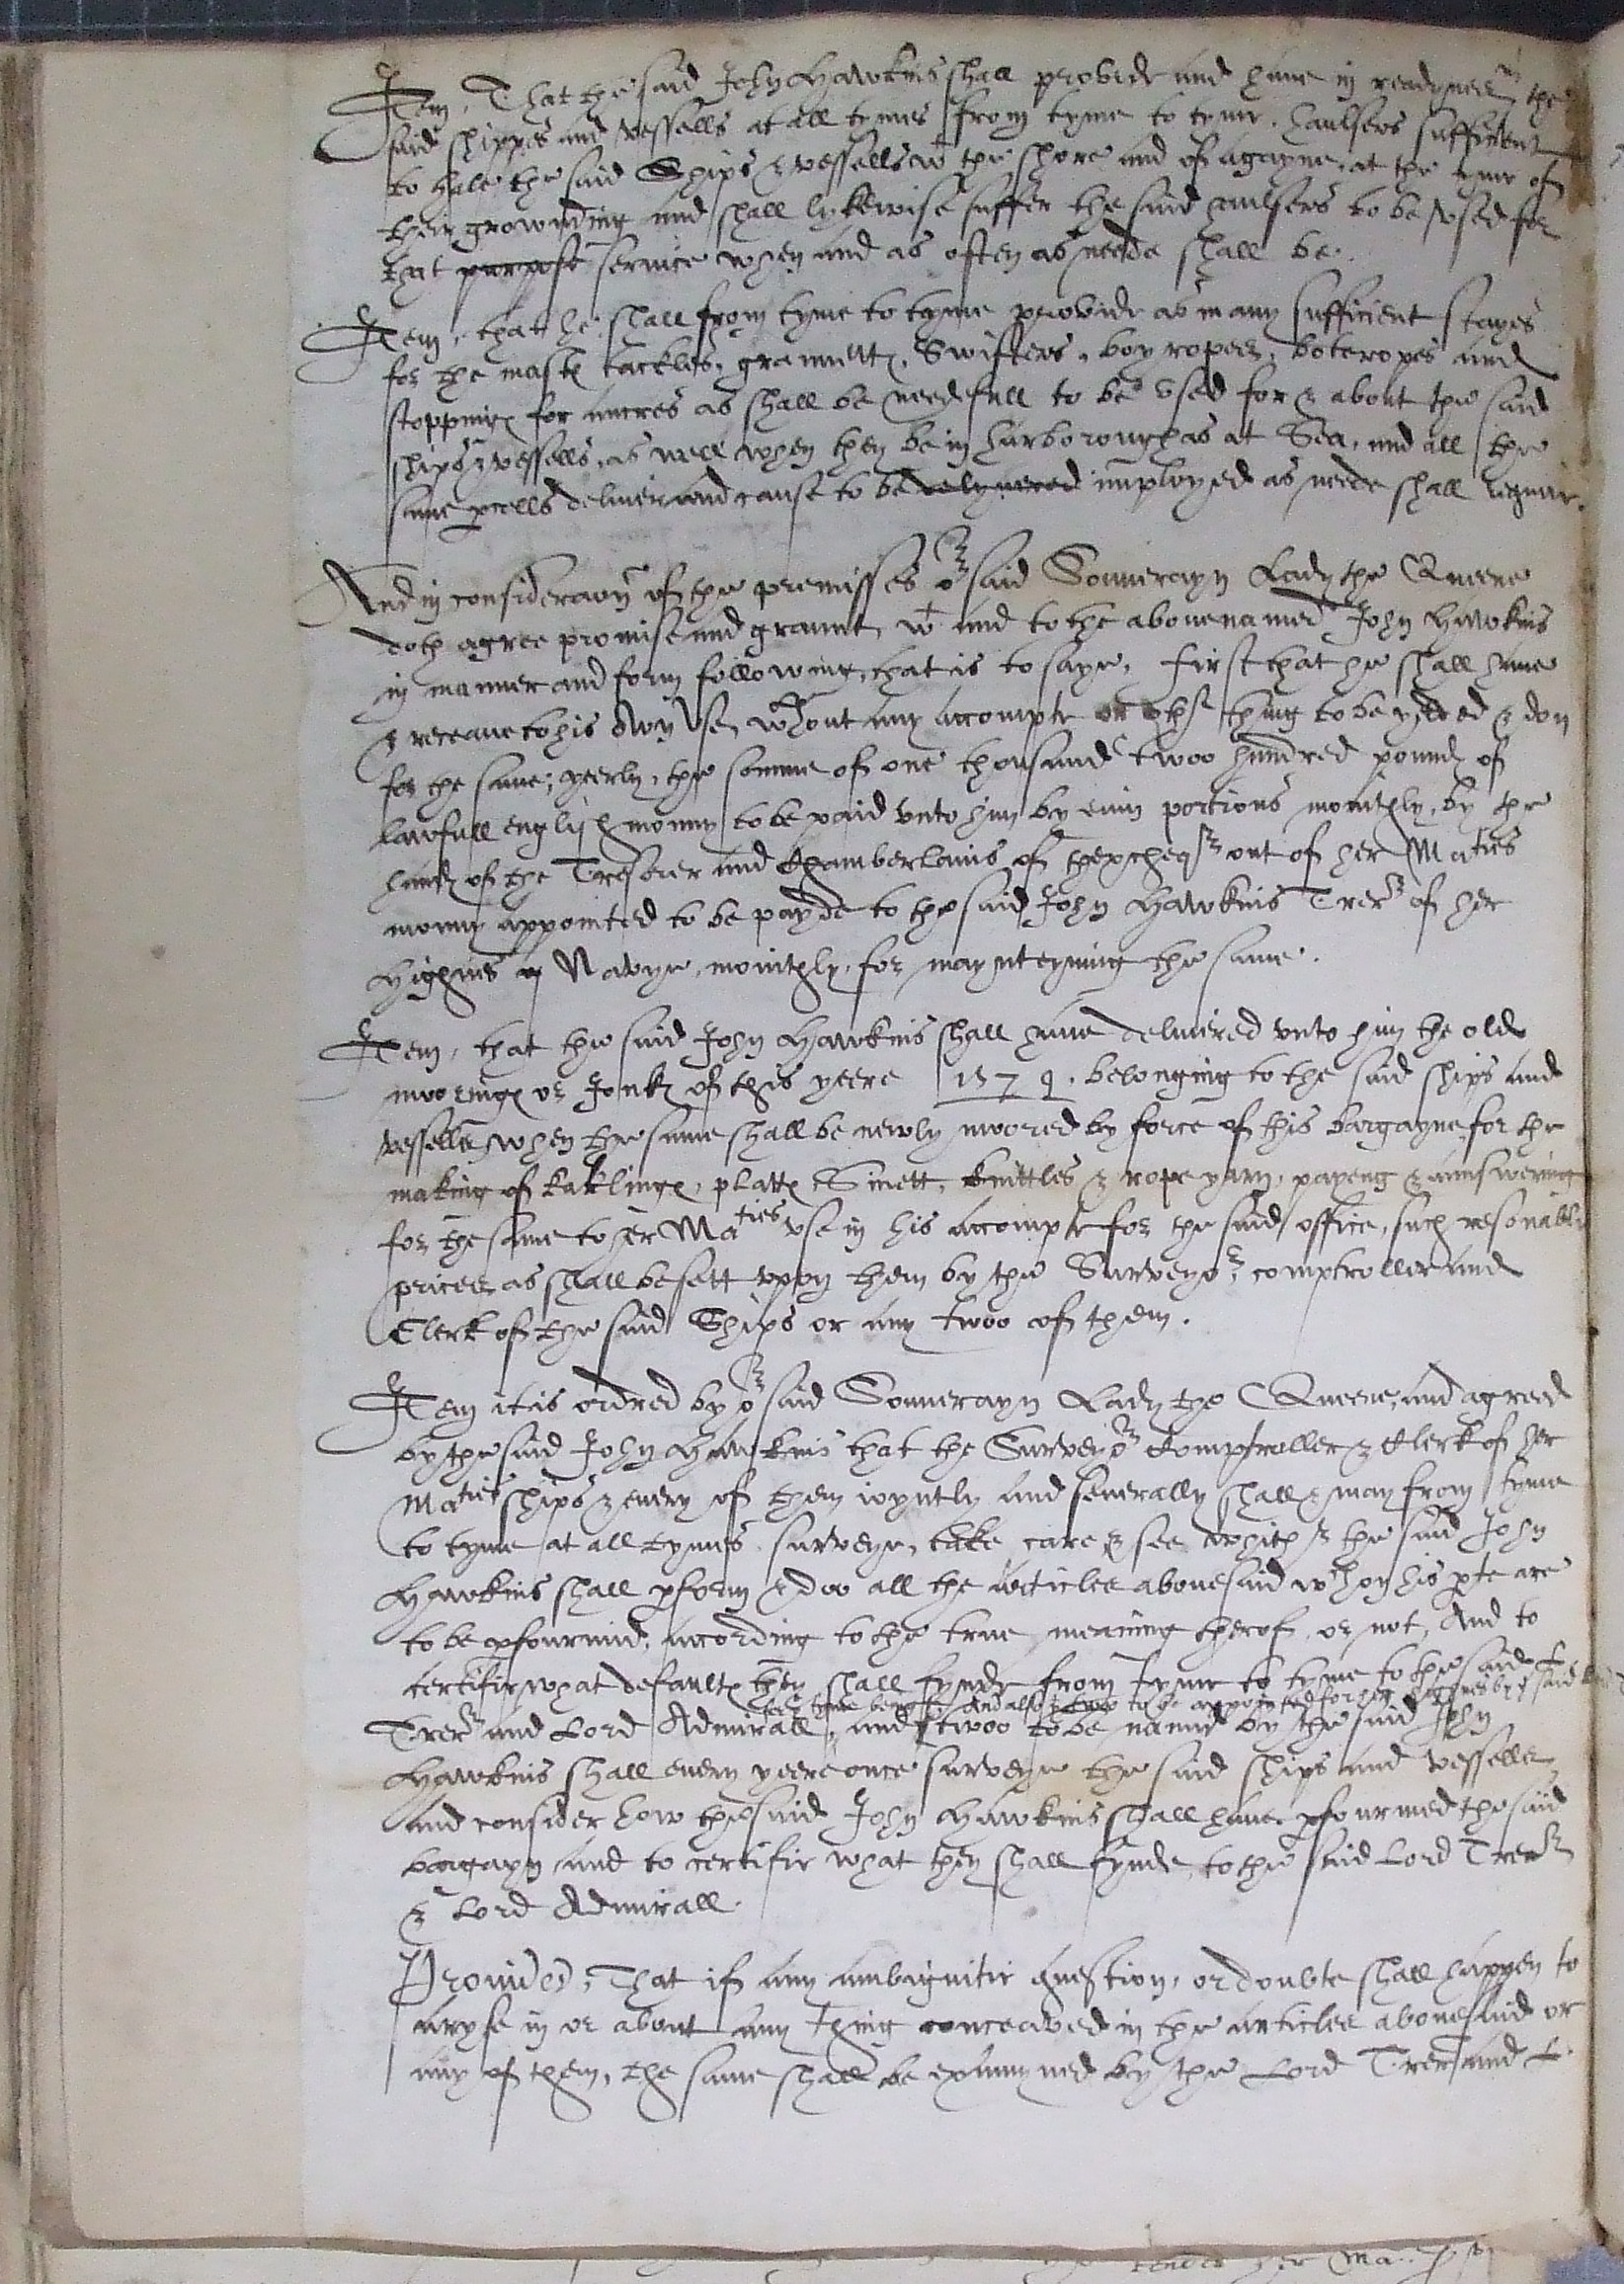 Item, That the said John Hawkins shall provide and haue in readynes wth the
said shippes and vessells at all tymes from tyme to tyme, haulsers sufficient
to hale the said Ships & vessells wt the shore and of agayne, at the tyme of
their grownding and shall lykewise suffer the said haulsers to be vsed for
that purpose seruice when and as often as neede shall be.
Item, that he shall from tyme to tyme provide as many sufficient stayes
for the mastes tackles, Swifters, boy ropes, boteropes and
stoppings for ancres as shall be needefull to be vsed for & about the said
ships & vessells, as well when they be in harborough as at Sea, and all the
same pcells deliuer and cause to be delyuered imployed as neede shall requir.
And in consideracon of the premisses or said Souuerayn Lady the Queene
doth agree promise and graunt, wt and to the abouenamed John Hawkins
in manner and form following, that is to saye, first that he shall haue
& receaue to his own vse, wthout any accompte or other thing to be yelded & don
for the same; yeerly, the somme of one thousand twoo hundred pounds of
lawfull english monny to be paid vnto him by euin portions monthly, by the
hands of the Tresorer and Chamberlains of thexcheqr out of her Maties
monny appointed to be payde to the said John Hawkins Trer of her
Highnes Navye, monthly, for maynteyning the same.
Item, that the said John Hawkins shall haue deliuered vnto him the old
moorings or Jonks of this yeere 1579. belonging to the said ships and
vessells when the same shall be newly moored by force of this bargayne, for the
making of kaklings, platts, Sinett, knittles & rope yarn, payeng & aunswering
for the same to her Maties vse in his accompte for the said office, such resonable
prices as shall be sett vpon them by the Surveyor, comptroller and
Clerk of the said Ships or any twoo of them.
Item it is ordred by or said Souuerayn Lady the Queene, and agreed
by the said John Hawkins that the Surveyor Comptroller & Clerk of her
Maties ships & euery of them ioyntly and seuerally shall & may from tyme
to tyme at all tymes surveye, take care & see whither the said John
Hawkins shall pform & doo all the articles abouesaid wh on his pte are
to be pfourmid, according to the true meaning therof, or not, And to
certifie what defaults they shall fynde from tyme to tyme to the said L
tyme being And also two to be appointed for her by the said
Trer and Lord Admirall, and twoo to be named by the said John
Hawkins shall euery yeere once surveye the said ships and vessells
and consider how the said John Hawkins shall haue pfourmed the said
bargayn and to certifie what they shall fynde, to the said Lord Trer
& Lord Admirall.
Prouided, That if any ambiguitie question, or doubte shall happen to
aryse in or about any thing conceaved in the articles abouesaid or
any of them, the same shall be examyned by the Lord Trer and L.
her Ma